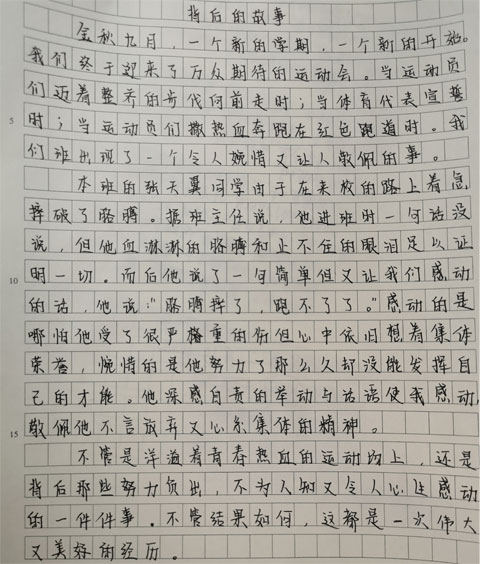 背后的故事
金秋九月，一个新的学期，一个新的开始。
我们终于迎来了万众期待的运动会。当运动员
们迈着整齐的步伐向前走时；当体育代表宣誓
5 时；当运动员们撒热血奔跑在红色跑道时。我
们班出现了一个令人惋惜又让人敬佩的事。
本班的张天翼同学由于在来校的路上着急
摔破了胳膊。据班主任说，他进班时一句话没
说，但他血淋淋的胳膊和止不住的眼泪足以证
10 明一切。而后他说了一句简单但又让我们感动
的话，他说：“胳膊摔了，跑不了了。”感动的是
哪怕他受了很严重的伤但心中依旧想着集体
荣誉，惋惜的是他努力了那么久却没能发挥自
己的才能。他深感自责的举动与话语使我感动，
15 敬佩他不言放弃又心系集体的精神。
不管是洋溢着青春热血的运动场上，还是
背后那些努力负出，不为人知又令人心生感动
的一件件事。不管结果如何，这都是一次伟大
又美好的经历。